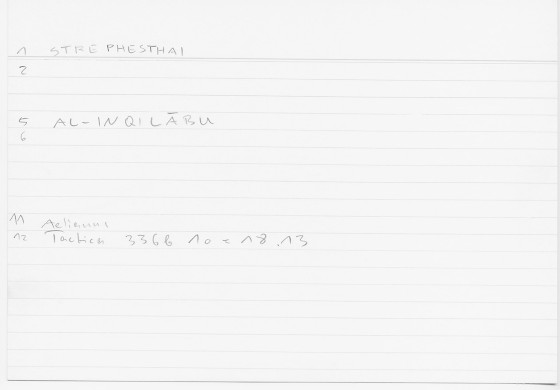 1 STREPHESTHAI
2
5 AL-INQILĀBU
6
11 Aelianus
12 Tactica 336B 10 = 18.13